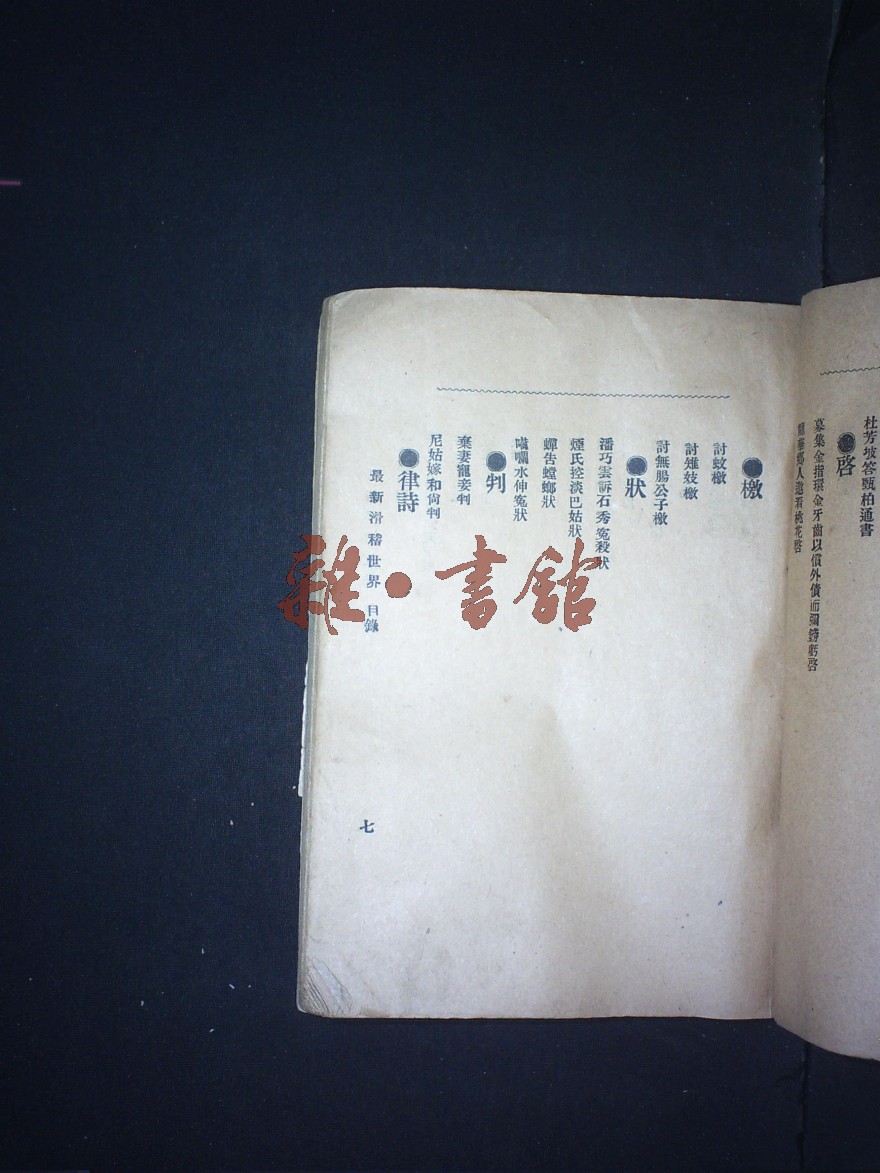 杜芳坡答甄柏通書
●啓
募集金指環金牙齒以償外債而彌錢虧啓
人邀看桃花啓
●檄
討蚊檄
討雉妓檄
討無腸公子檄
●狀
潘巧雲訴石秀寃殺狀
煙氏控淡巴姑狀
蟬告螳螂狀
水伸寃狀
●判
棄妻寵妾判
尼姑嫁和尙判
●律詩
最新滑稽世界 目錄
七
雜·書館